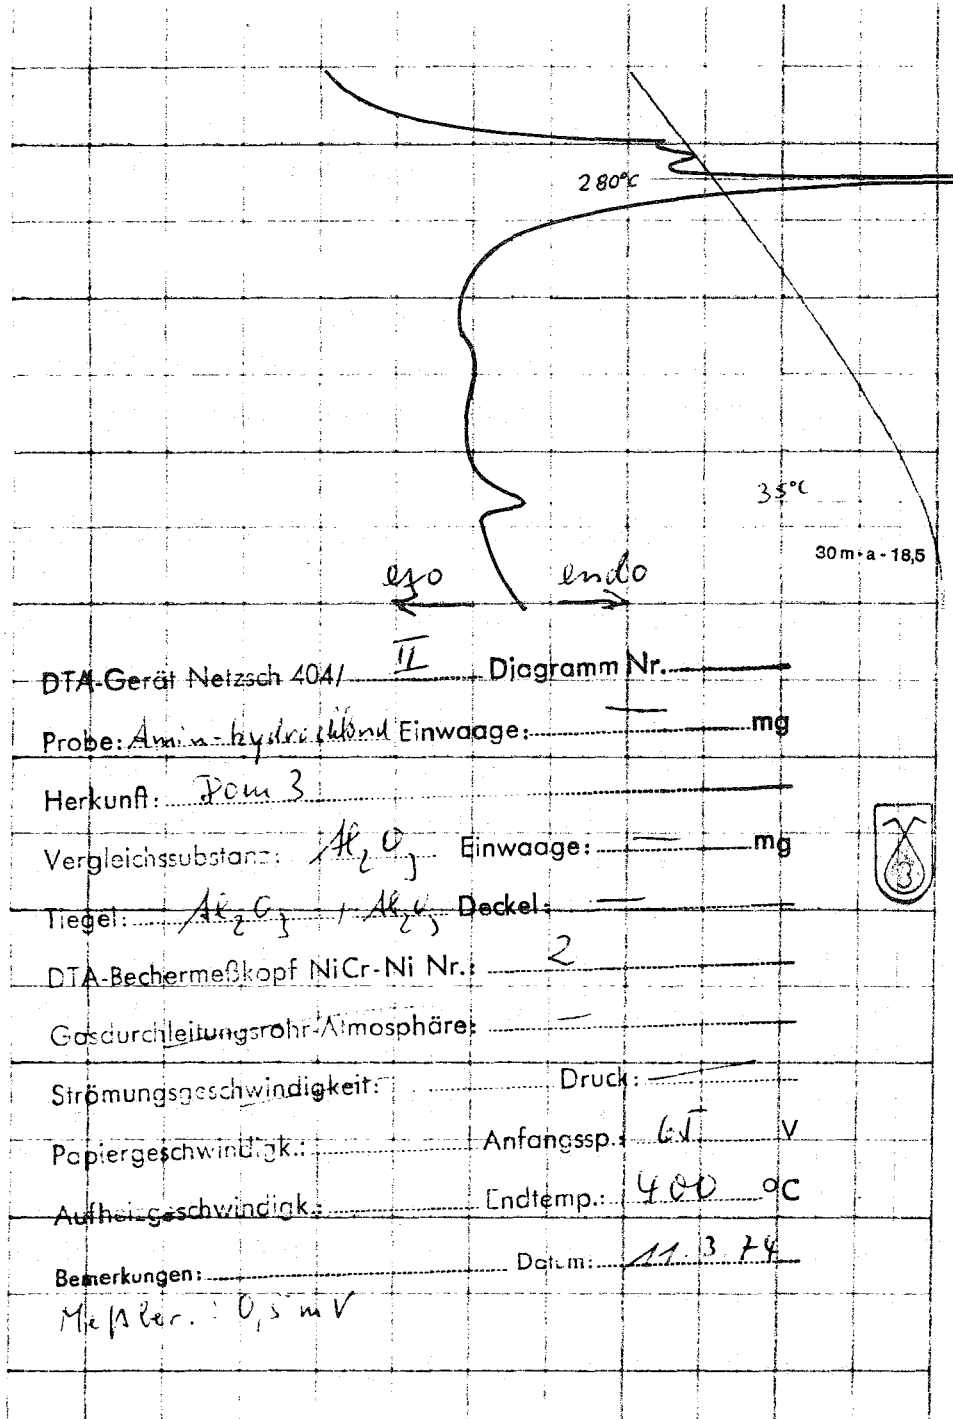 280°C
35°C
30 m·a-18,5
exo endo
DTA-Gerät Netzsch 404/ II Diagramm Nr.
Probe: Amin-hydrochlorid Einwaage: — mg
Herkunft: Dom 3
Vergleichssubstanz: Al2O3 Einwaage: — mg
Tiegel: Al2O3 , Al2O3 Deckel: —
DTA-Bechermeßkopf NiCr-Ni Nr.: 2
Gasdurchleitungsrohr-Atmosphäre: —
Strömungsgeschwindigkeit: Druck: —
Papiergeschwindigk.: Anfangssp.: 65 V
Aufheizgeschwindigk.: Endtemp.: 400 °C
Bemerkungen: Datum: 11.3.74
Meßber.: 0,5 mV